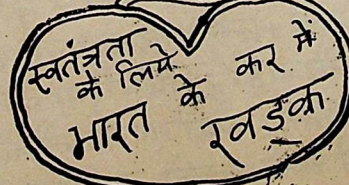 स्वतंत्रता
के लिये
भारत के कर में
खड़क